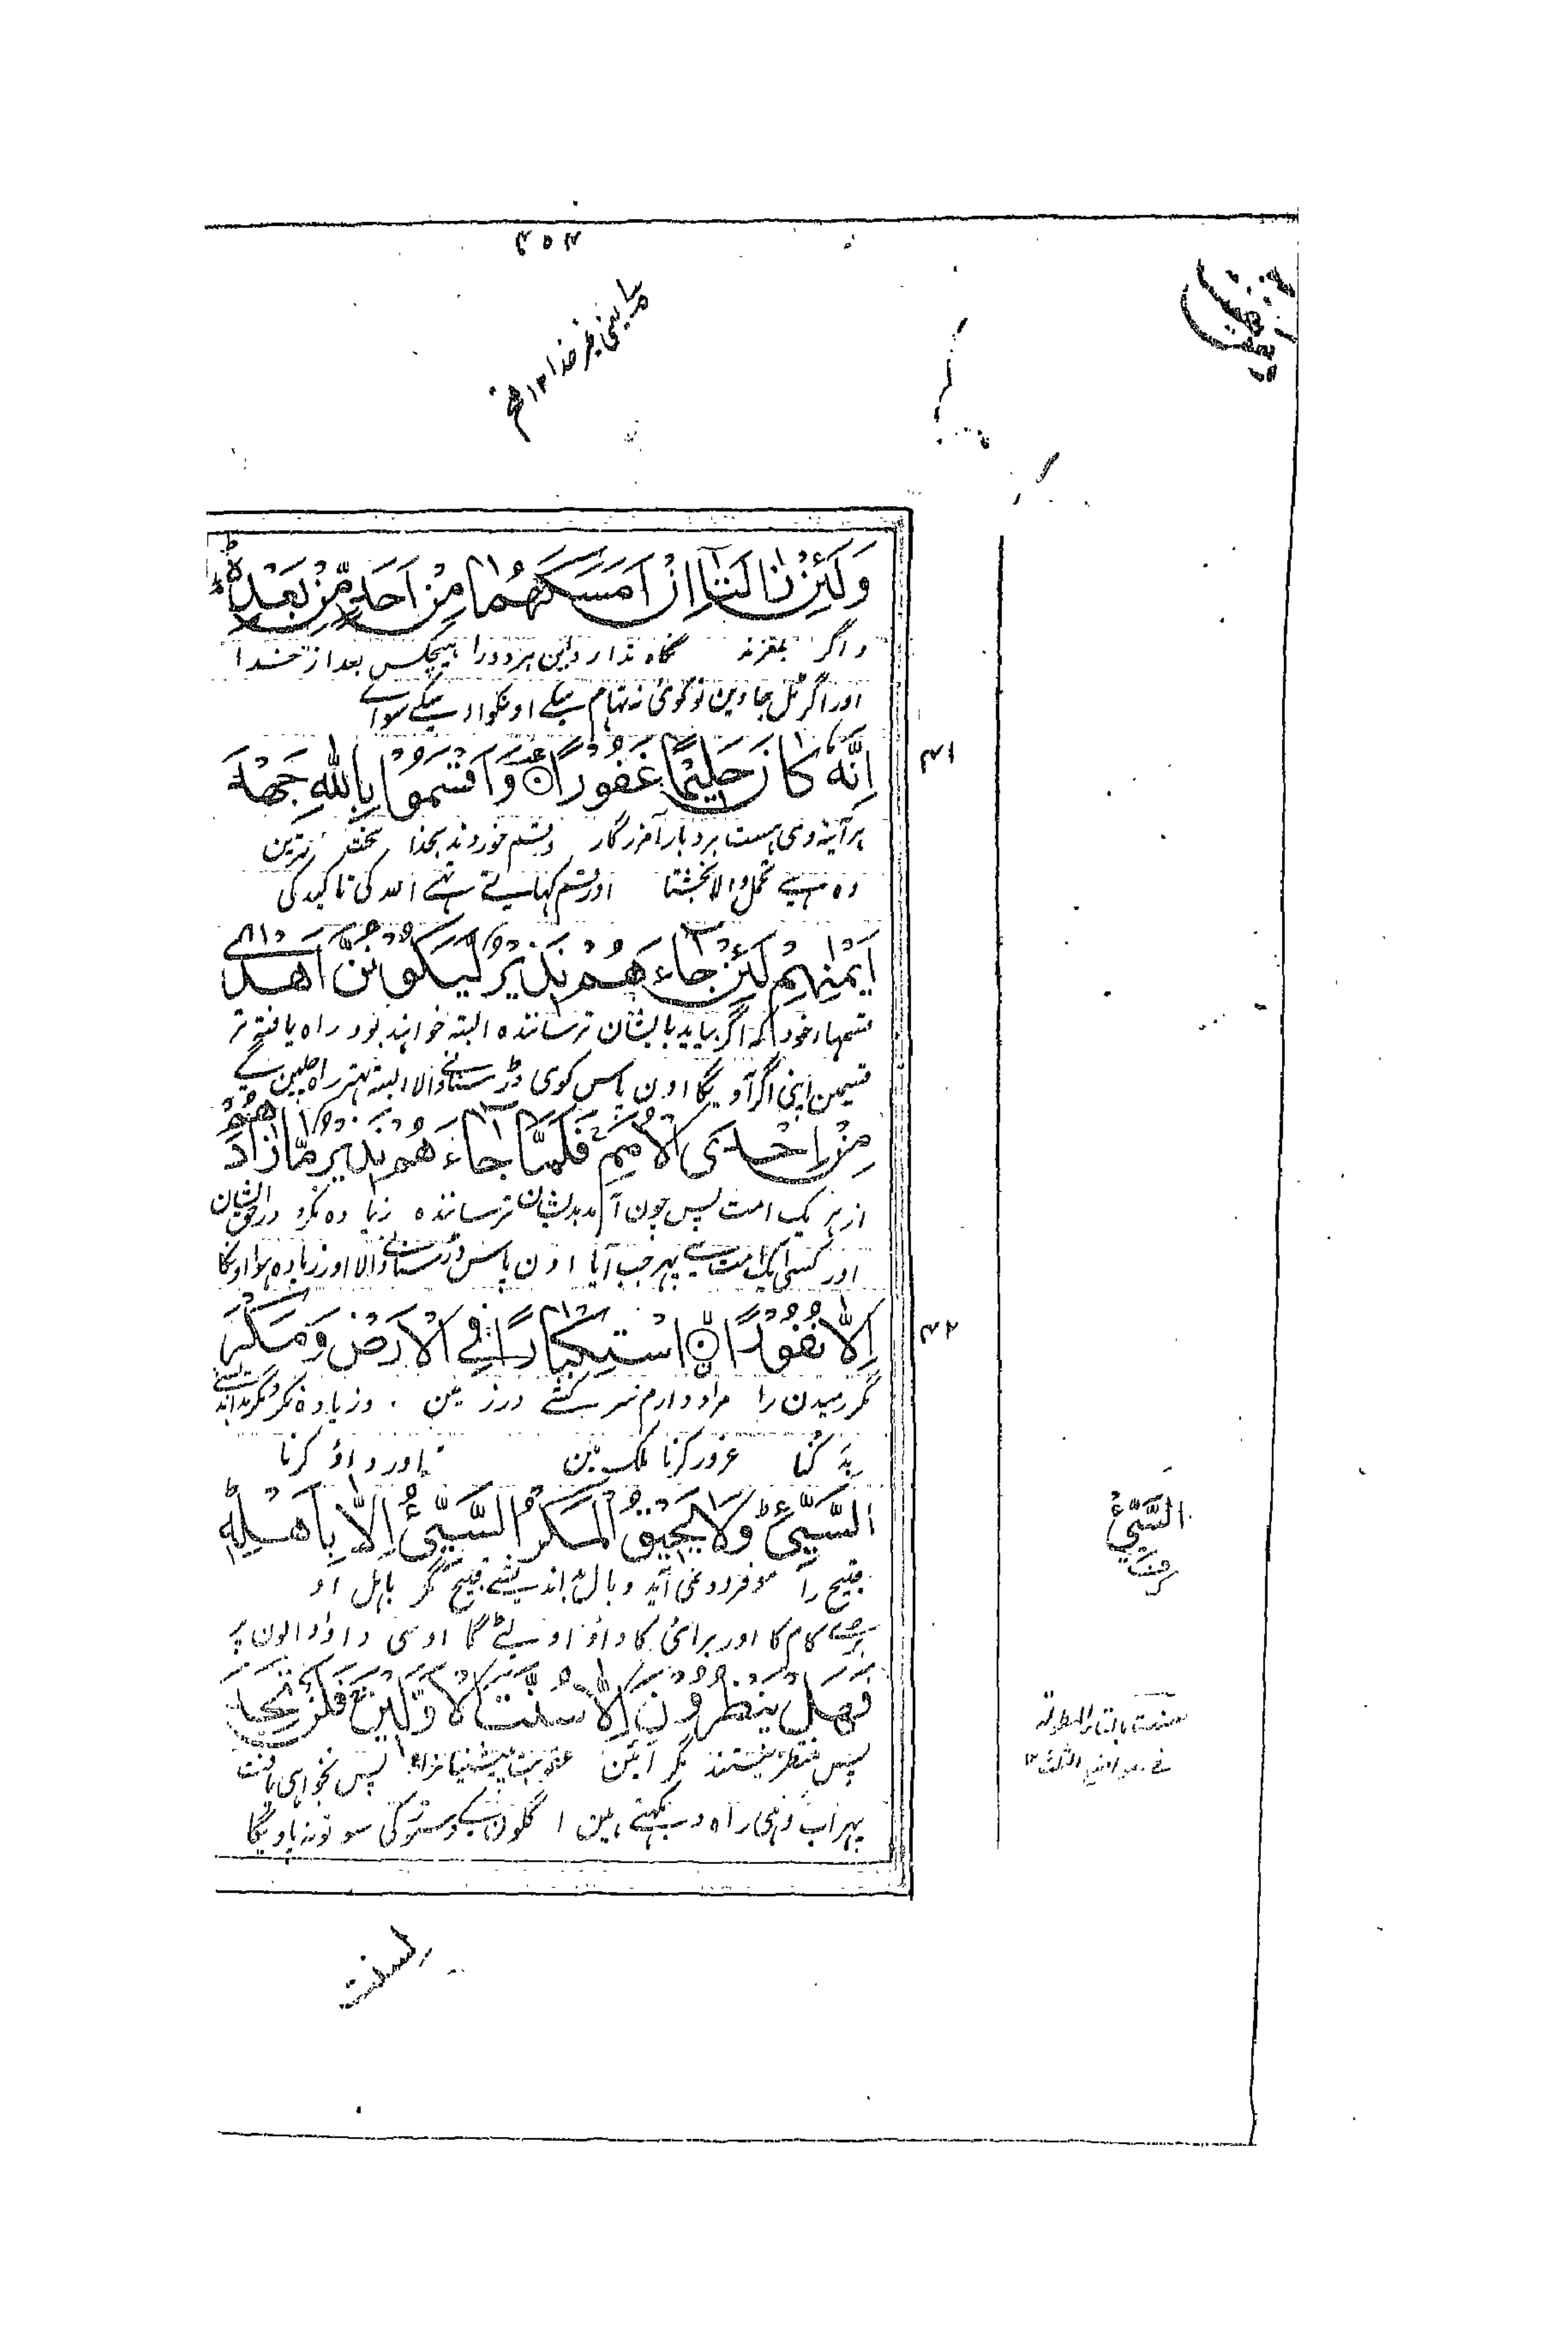 ۴۵۴
وَلَئِنْ زَالَتَا اِنْ اَمْسَكَهُمَا مِنْ اَحَدٍ مِّنْ بَعْدِهٖ ط
و اگر بلغزند نگاه ندارد این هر دو را هیچکس بعد از خدا
اور اگر ٹل جاوین تو کوئی نہ تہام سکے اونکو اوسکے سوائے
اِنَّهٗ كَانَ حَلِيْمًا غَفُوْرًا ۝ وَاَقْسَمُوْا بِاللّٰهِ جَهْدَ
۴۱
هر آینه وی هست بردبار آمرزگار و قسم خوردند بخدا سخت ترین
وہ ہے تحمل والا بخشتا اور قسم کہاتے تہے اللہ کی تاکید کی
اَيْمٰنِهِمْ لَئِنْ جَآءَهُمْ نَذِيْرٌ لَّيَكُوْنُنَّ اَهْدٰى
قسمهاء خود که اگر بیاید بایشان ترساننده البته خواهند بود راه یافته تر
قسیمن اپنی اگر آویگا اون پاس کوی ڈر سنانے والا البتہ بہتر راہ چلین گے
مِنْ اِحْدَى الْاُمَمِ فَلَمَّا جَآءَهُمْ نَذِيْرٌ مَّا زَادَهُمْ
از هر یک امت پس چون آمد بدیشان ترساننده زیاده نکرد در حق ایشان
اور کسی ایک امت سے پہر جب آیا اون پاس ڈر سنانے والا اور زیادہ ہوا اونکا
اِلَّا نُفُوْرًا ۝ اسْتِكْبَارًا فِى الْاَرْضِ وَمَكْرَ
۴۲
مگر رمیدن را مراد دارم سرکشے در زمین و زیاده نکرد مگر بداندیشے
بدکنا غرور کرنا ملک مین اور داؤ کرنا
السَّيِّئِ ط وَلَا يَحِيْقُ الْمَكْرُ السَّيِّئُ اِلَّا بِاَهْلِهٖ ط
قبیح را و فرود نمی آید وبال اندیشے قبیح مگر باهل او
برے کام کا اور برائی کا داؤ اولٹے گا اوسی داؤ والون پر
السَّيِّئُ
فَهَلْ يَنْظُرُوْنَ اِلَّا سُنَّتَ الْاَوَّلِيْنَ ج فَلَنْ تَجِدَ
پس منتظر نیستند مگر آئین عقوبت پیشینیان را پس نخواهی یافت
پہر اب وہی راہ دیکہتے ہین اگلون کے دستور کی سو تو نہ پاویگا
لسنت